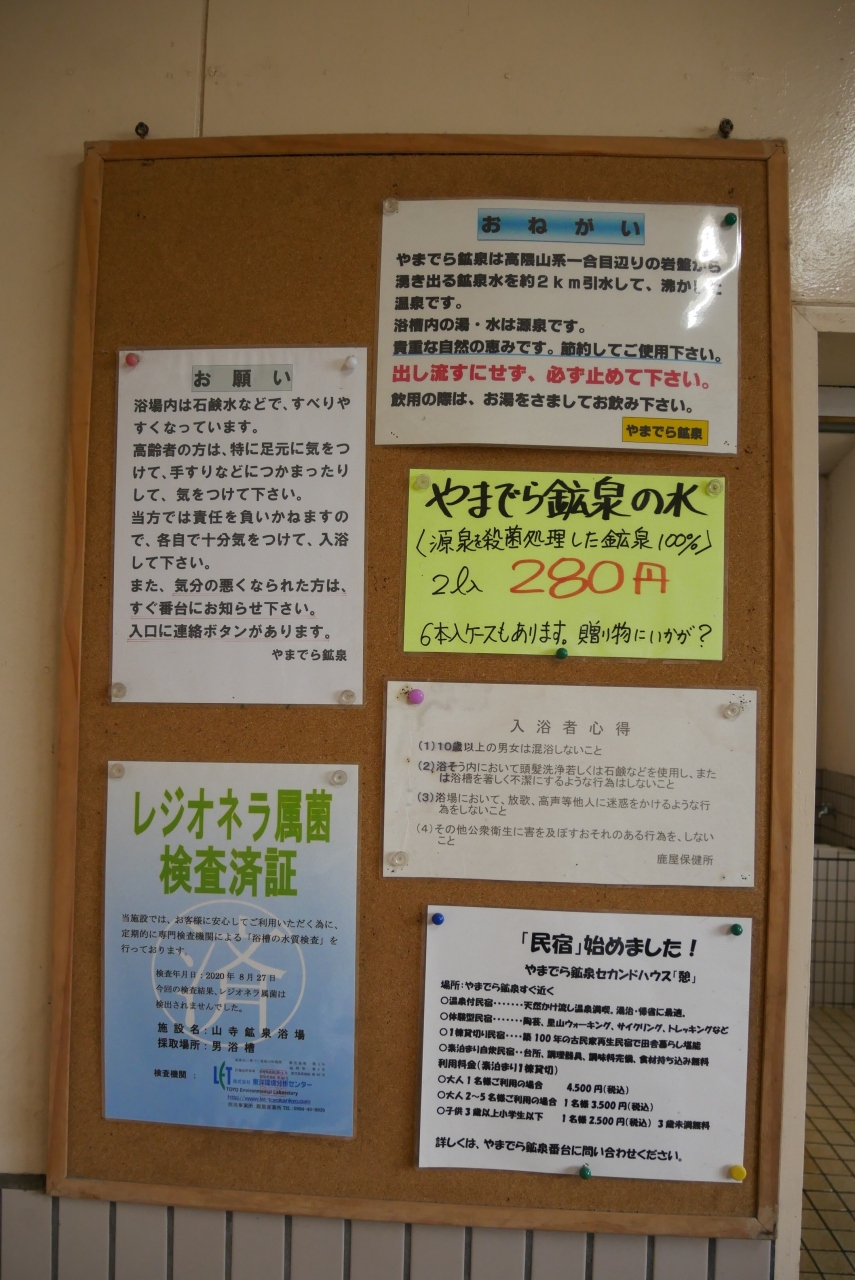 おねがい
やまでら鉱泉は高隈山系一合目辺りの岩盤から
湧き出る鉱泉水を約２ｋｍ引水して、沸かした
温泉です。
浴槽内の湯・水は源泉です。
貴重な自然の恵みです。節約してご使用下さい。
出し流すにせず、必ず止めて下さい。
飲用の際は、お湯をさましてお飲み下さい。
やまでら鉱泉
お願い
浴場内は石鹸水などで、すべりや
すくなっています。
高齢者の方は、特に足元に気をつ
けて、手すりなどにつかまったり
して、気をつけて下さい。
当方では責任を負いかねますの
で、各自で十分気をつけて、入浴
して下さい。
また、気分の悪くなられた方は、
すぐ番台にお知らせ下さい。
入口に連絡ボタンがあります。
やまでら鉱泉
やまでら鉱泉の水
〈源泉を殺菌処理した鉱泉100%〉
2ℓ入 280円
6本入ケースもあります。贈り物にいかが？
入浴者心得
（1）10歳以上の男女は混浴しないこと
（2）浴そう内において頭髪洗浄若しくは石鹸などを使用し、また
は浴槽を著しく不潔にするような行為はしないこと
（3）浴場において、放歌、高声等他人に迷惑をかけるような行
為をしないこと
（4）その他公衆衛生に害を及ぼすおそれのある行為を、しない
こと
鹿屋保健所
レジオネラ属菌
検査済証
当施設では、お客様に安心してご利用いただく為に、
定期的に専門検査機関による「浴槽の水質検査」を
行っております。
済
検査年月日：2020年 8月27日
今回の検査結果、レジオネラ属菌は
検出されませんでした。
施設名：山寺鉱泉浴場
採取場所：男浴槽
検査機関：
LET
株式会社 東洋環境分析センター
TOYO Environmental Laboratory
「民宿」始めました！
やまでら鉱泉セカンドハウス「憩」
場所：やまでら鉱泉すぐ近く
○温泉付民宿・・・・・・・天然かけ流し温泉満喫。湯治・帰省に最適。
○体験型民宿・・・・・・・陶芸、里山ウォーキング、サイクリング、トレッキングなど
○1棟貸切り民宿・・・・築100年の古民家再生民宿で田舎暮らし堪能
○素泊まり自炊民宿・・台所、調理器具、調味料完備、食材持ち込み無料
利用料金（素泊まり1棟貸切）
○大人1名様ご利用の場合 4.500円（税込）
○大人2～5名様ご利用の場合 1名様3.500円（税込）
○子供3歳以上小学生以下 1名様2.500円（税込） 3歳未満無料
詳しくは、やまでら鉱泉番台に問い合わせください。